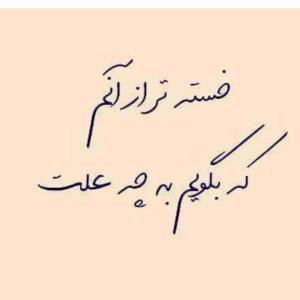 خسته تر از آنم
که بگویم به چه علت